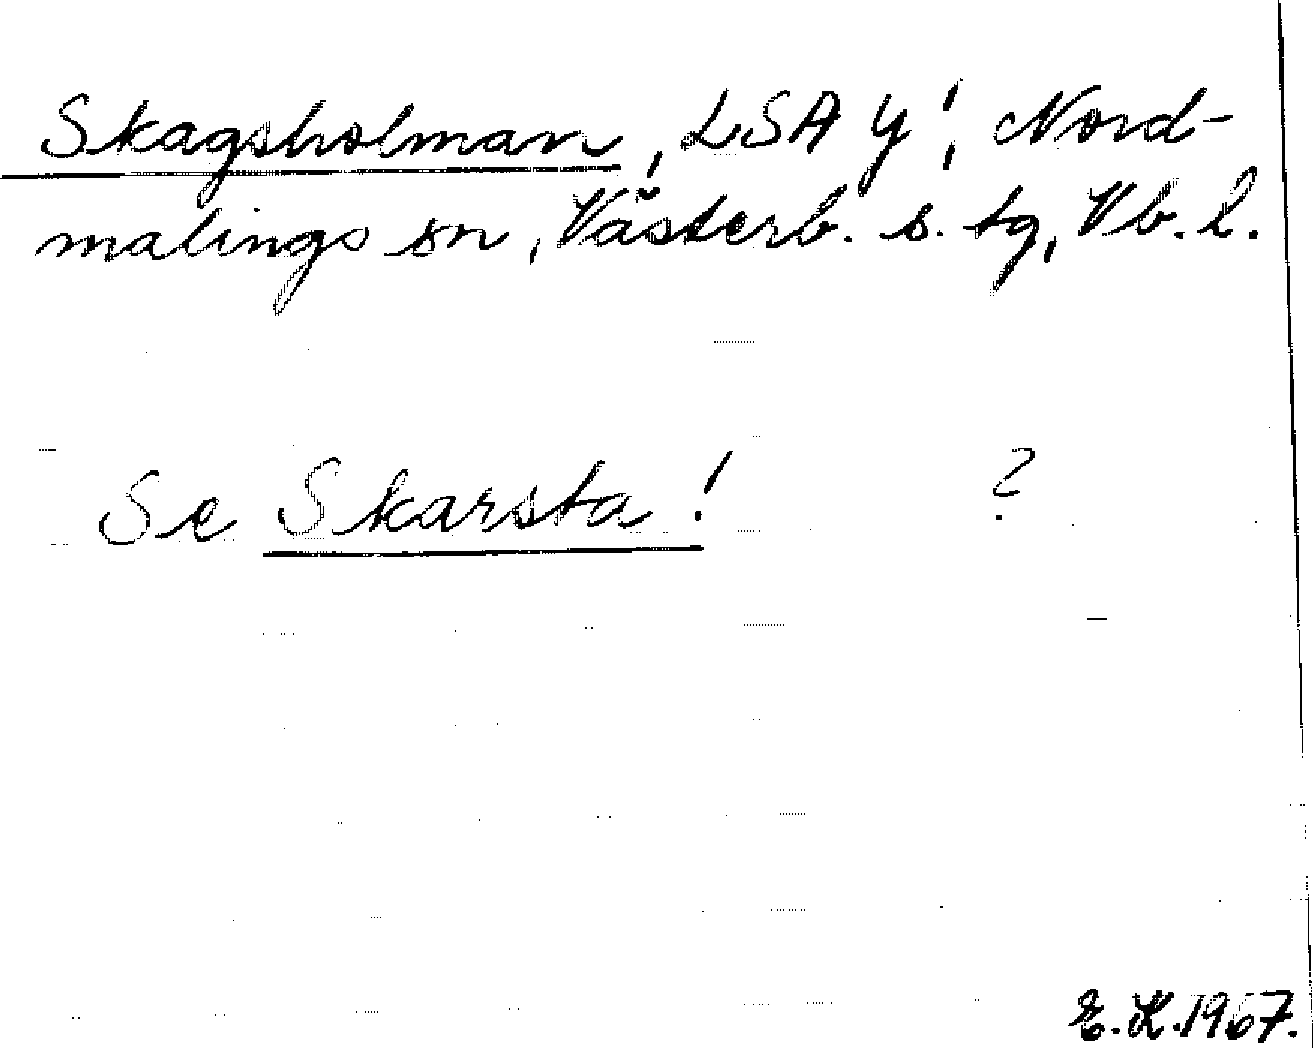 Skagsholman, LSA Y!, Nord-
malings sn, Västerb. s. tg, Vb. l.
Se Skarsta! ?
E. K. 1967.